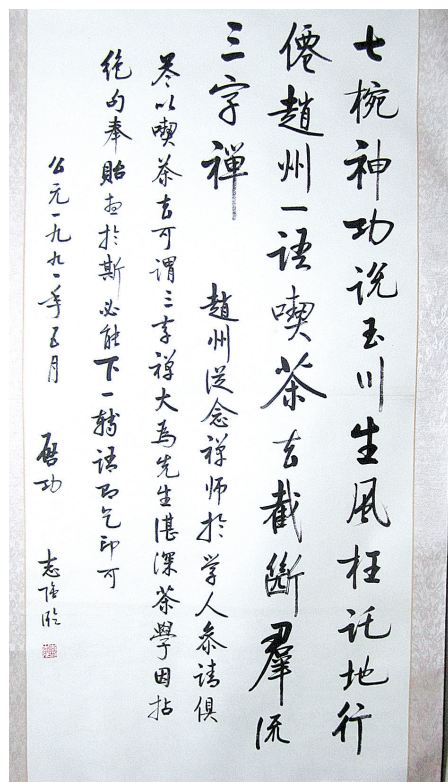 七椀神功说玉川生風枉託地行
僊趙州一语喫茶去截斷羣流
三字禪
趙州從念禅师於学人参请俱
荅以喫茶去可谓三字禅大為先生湛深茶學因拈
绝句奉貽於斯必能下一轉语即乞印可
公元一九九一年五月 啓功 志强临